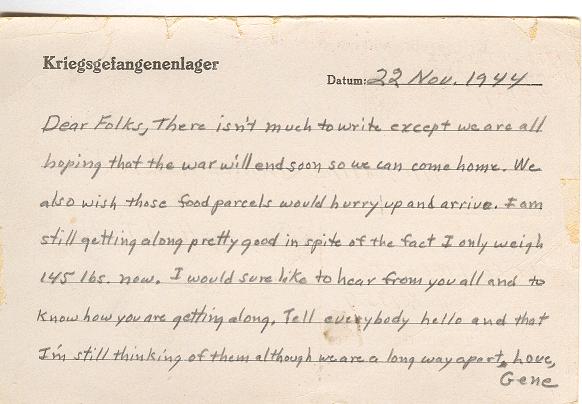 Kriegsgefangenenlager
Datum: 22 Nov. 1944
Dear Folks, There isn't much to write except we are all
hoping that the war will end soon so we can come home. We
also wish those food parcels would hurry up and arrive. I am
still getting along pretty good in spite of the fact I only weigh
145 lbs. now. I would sure like to hear from you all and to
know how you are getting along. Tell everybody hello and that
I'm still thinking of them although we are a long way apart. Love,
Gene